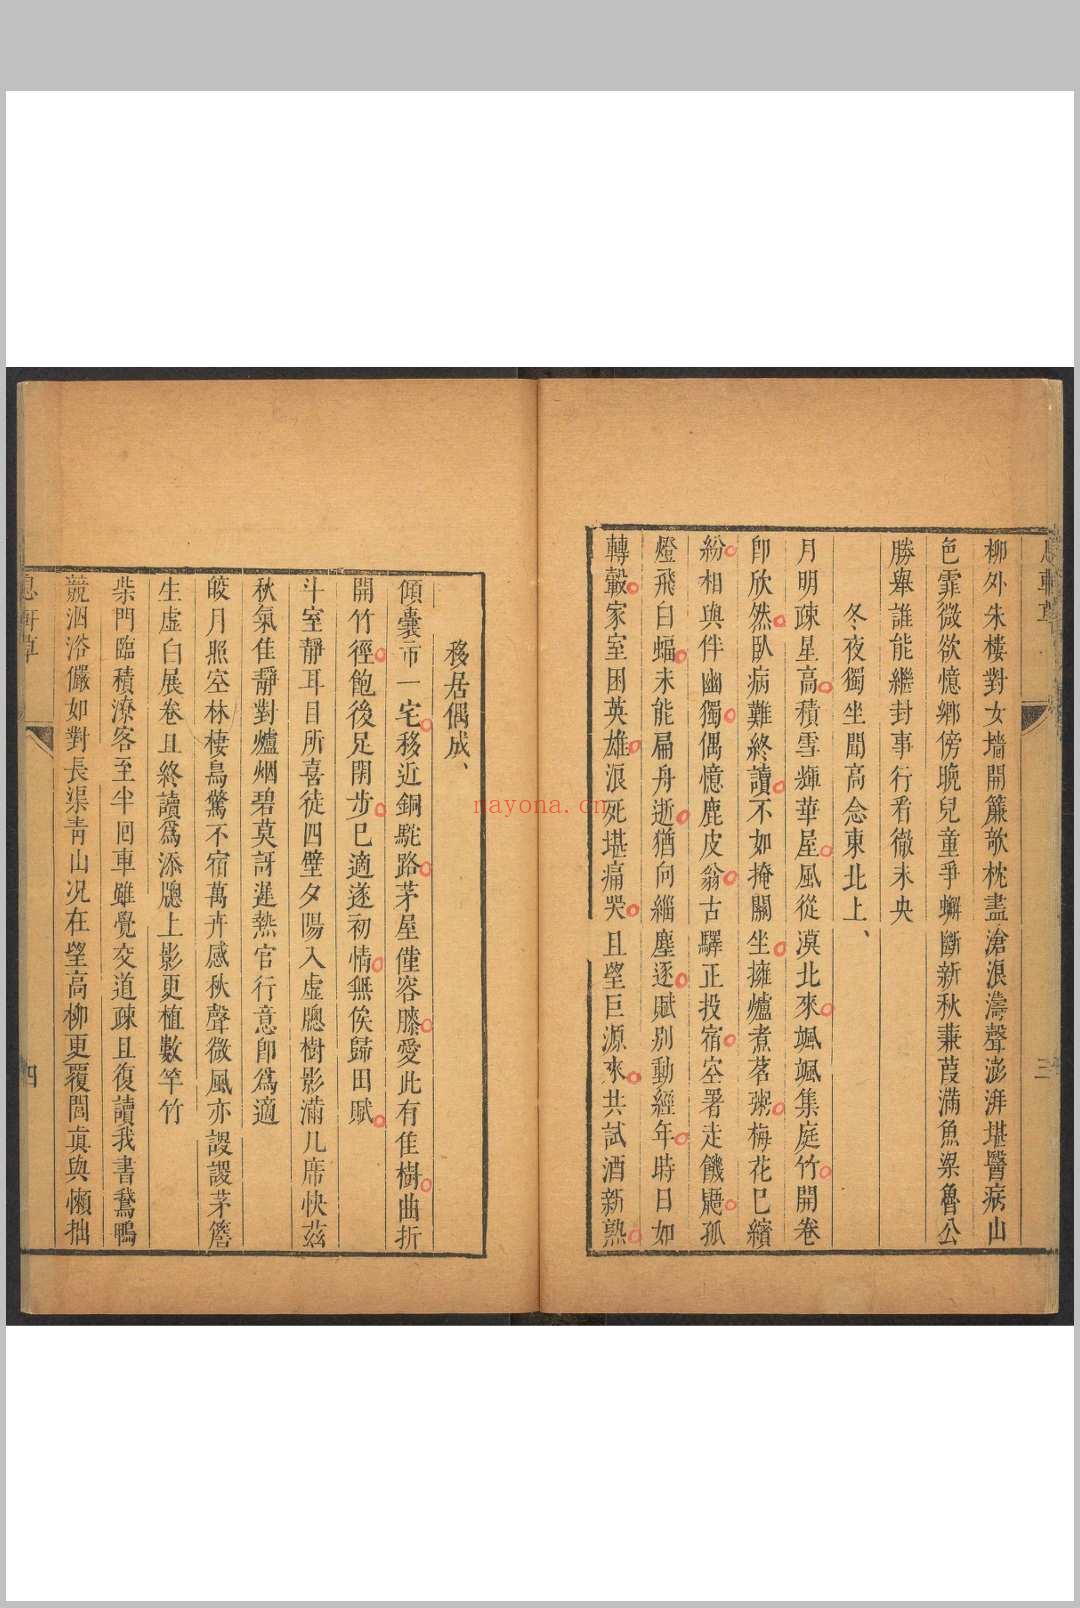 柳外朱樓對女墻開簾欹枕盡滄浪濤聲澎湃堪醫病山
色霏微欲憶鄉傍晚兒童爭蠏斷新秋蒹葭滿魚梁魯公
勝舉誰能繼封事行看徹未央
冬夜獨坐聞高念東北上、
月明疎星高積雪輝華屋風從漠北來颯颯集庭竹開卷
卽欣然臥病難終讀不如掩關坐擁爐煮茗粥梅花已繽
紛相與伴幽獨偶憶鹿皮翁古驛正投宿空署走饑鼯孤
燈飛白蝠未能扁舟逝猶向緇塵逐賦别動經年時日如
轉轂家室困英雄浪死堪痛哭且望巨源來共試酒新熟
三
移居偶成、
傾囊市一宅移近銅駝路茅屋僅容膝愛此有佳樹曲折
開竹徑飽後足閒步已適遂初情無俟歸田賦
斗室靜耳目所喜徒四壁夕陽入虛牕樹影滿几席快茲
秋氣佳靜對爐烟碧莫訝遲熱官行意卽爲適
皎月照空林棲鳥驚不宿萬卉感秋聲微風亦謖謖茅簷
生虛白展卷且終讀爲添牕上影更植數竿竹
柴門臨積潦客至半回車雖覺交道疎且復讀我書鵞鴨
競泅浴儼如對長渠靑山况在望高柳更覆閭眞與懶拙
四
nayona.cn